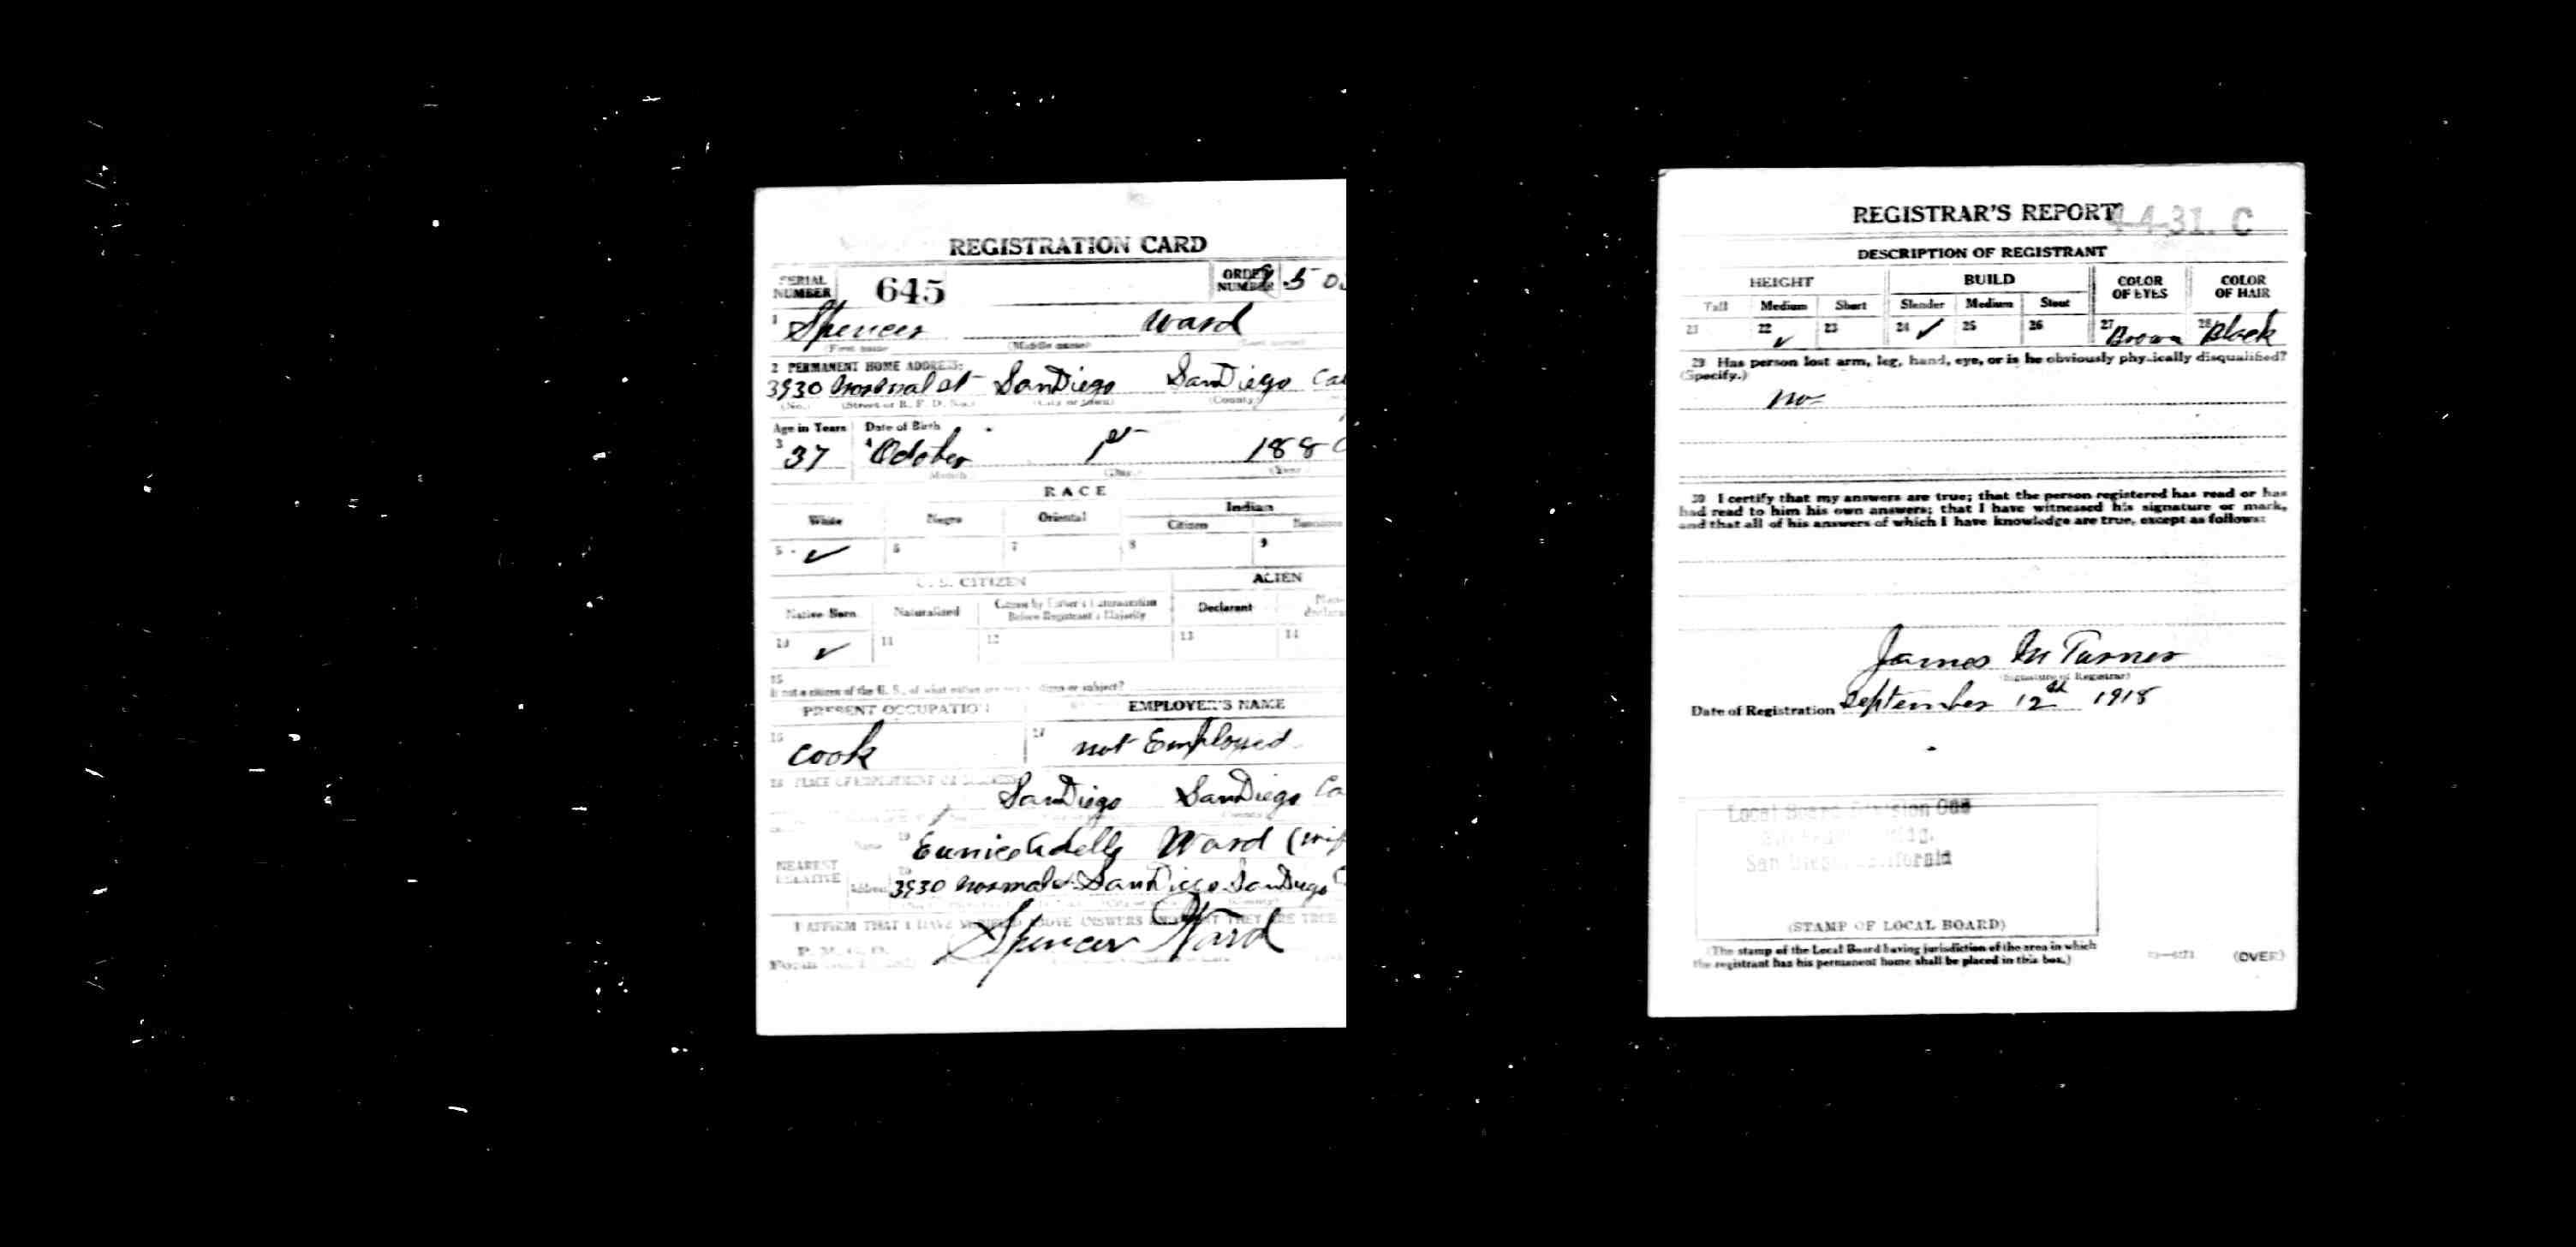 REGISTRATION CARD
SERIAL NUMBER 645 ORDER NUMBER
1 Spencer Ward
(First name) (Middle name) (Last name)
2 PERMANENT HOME ADDRESS:
3930 Normal st San Diego San Diego Cal
(No.) (Street or R. F. D. No.) (City or town) (County)
Age in Years Date of Birth
3 37 4 October 1st 188
(Month) (Day) (Year)
RACE
White Negro Oriental Indian
Citizen
5 6 7 8 9
U. S. CITIZEN ALIEN
Native Born Naturalized Citizen by Father's Naturalization Before Registrant's Majority Declarant
10 11 12 13 14
15
If not a citizen of the U. S., of what nation are you a citizen or subject?
PRESENT OCCUPATION EMPLOYER'S NAME
16 cook 17 not Employed
18 PLACE OF EMPLOYMENT OR BUSINESS
San Diego San Diego Ca
NEAREST RELATIVE
Name 19 Eunice Adella Ward (wif
Address 20 3930 Normal st San Diego San Diego
I AFFIRM THAT I HAVE VERIFIED ABOVE ANSWERS AND THAT THEY ARE TRUE
P. M. G. O.
Spencer Ward
REGISTRAR'S REPORT 4-4-31. C
DESCRIPTION OF REGISTRANT
HEIGHT BUILD COLOR OF EYES COLOR OF HAIR
Tall Medium Short Slender Medium Stout
21 22 23 24 25 26 27 Brown 28 Black
29 Has person lost arm, leg, hand, eye, or is he obviously physically disqualified?
(Specify.)
no
30 I certify that my answers are true; that the person registered has read or has
had read to him his own answers; that I have witnessed his signature or mark,
and that all of his answers of which I have knowledge are true, except as follows:
James M Turner
(Signature of Registrar)
Date of Registration September 12th 1918
Local Board Division One
Bldg.
San Diego, California
(STAMP OF LOCAL BOARD)
(The stamp of the Local Board having jurisdiction of the area in which
the registrant has his permanent home shall be placed in this box.)
(OVER)